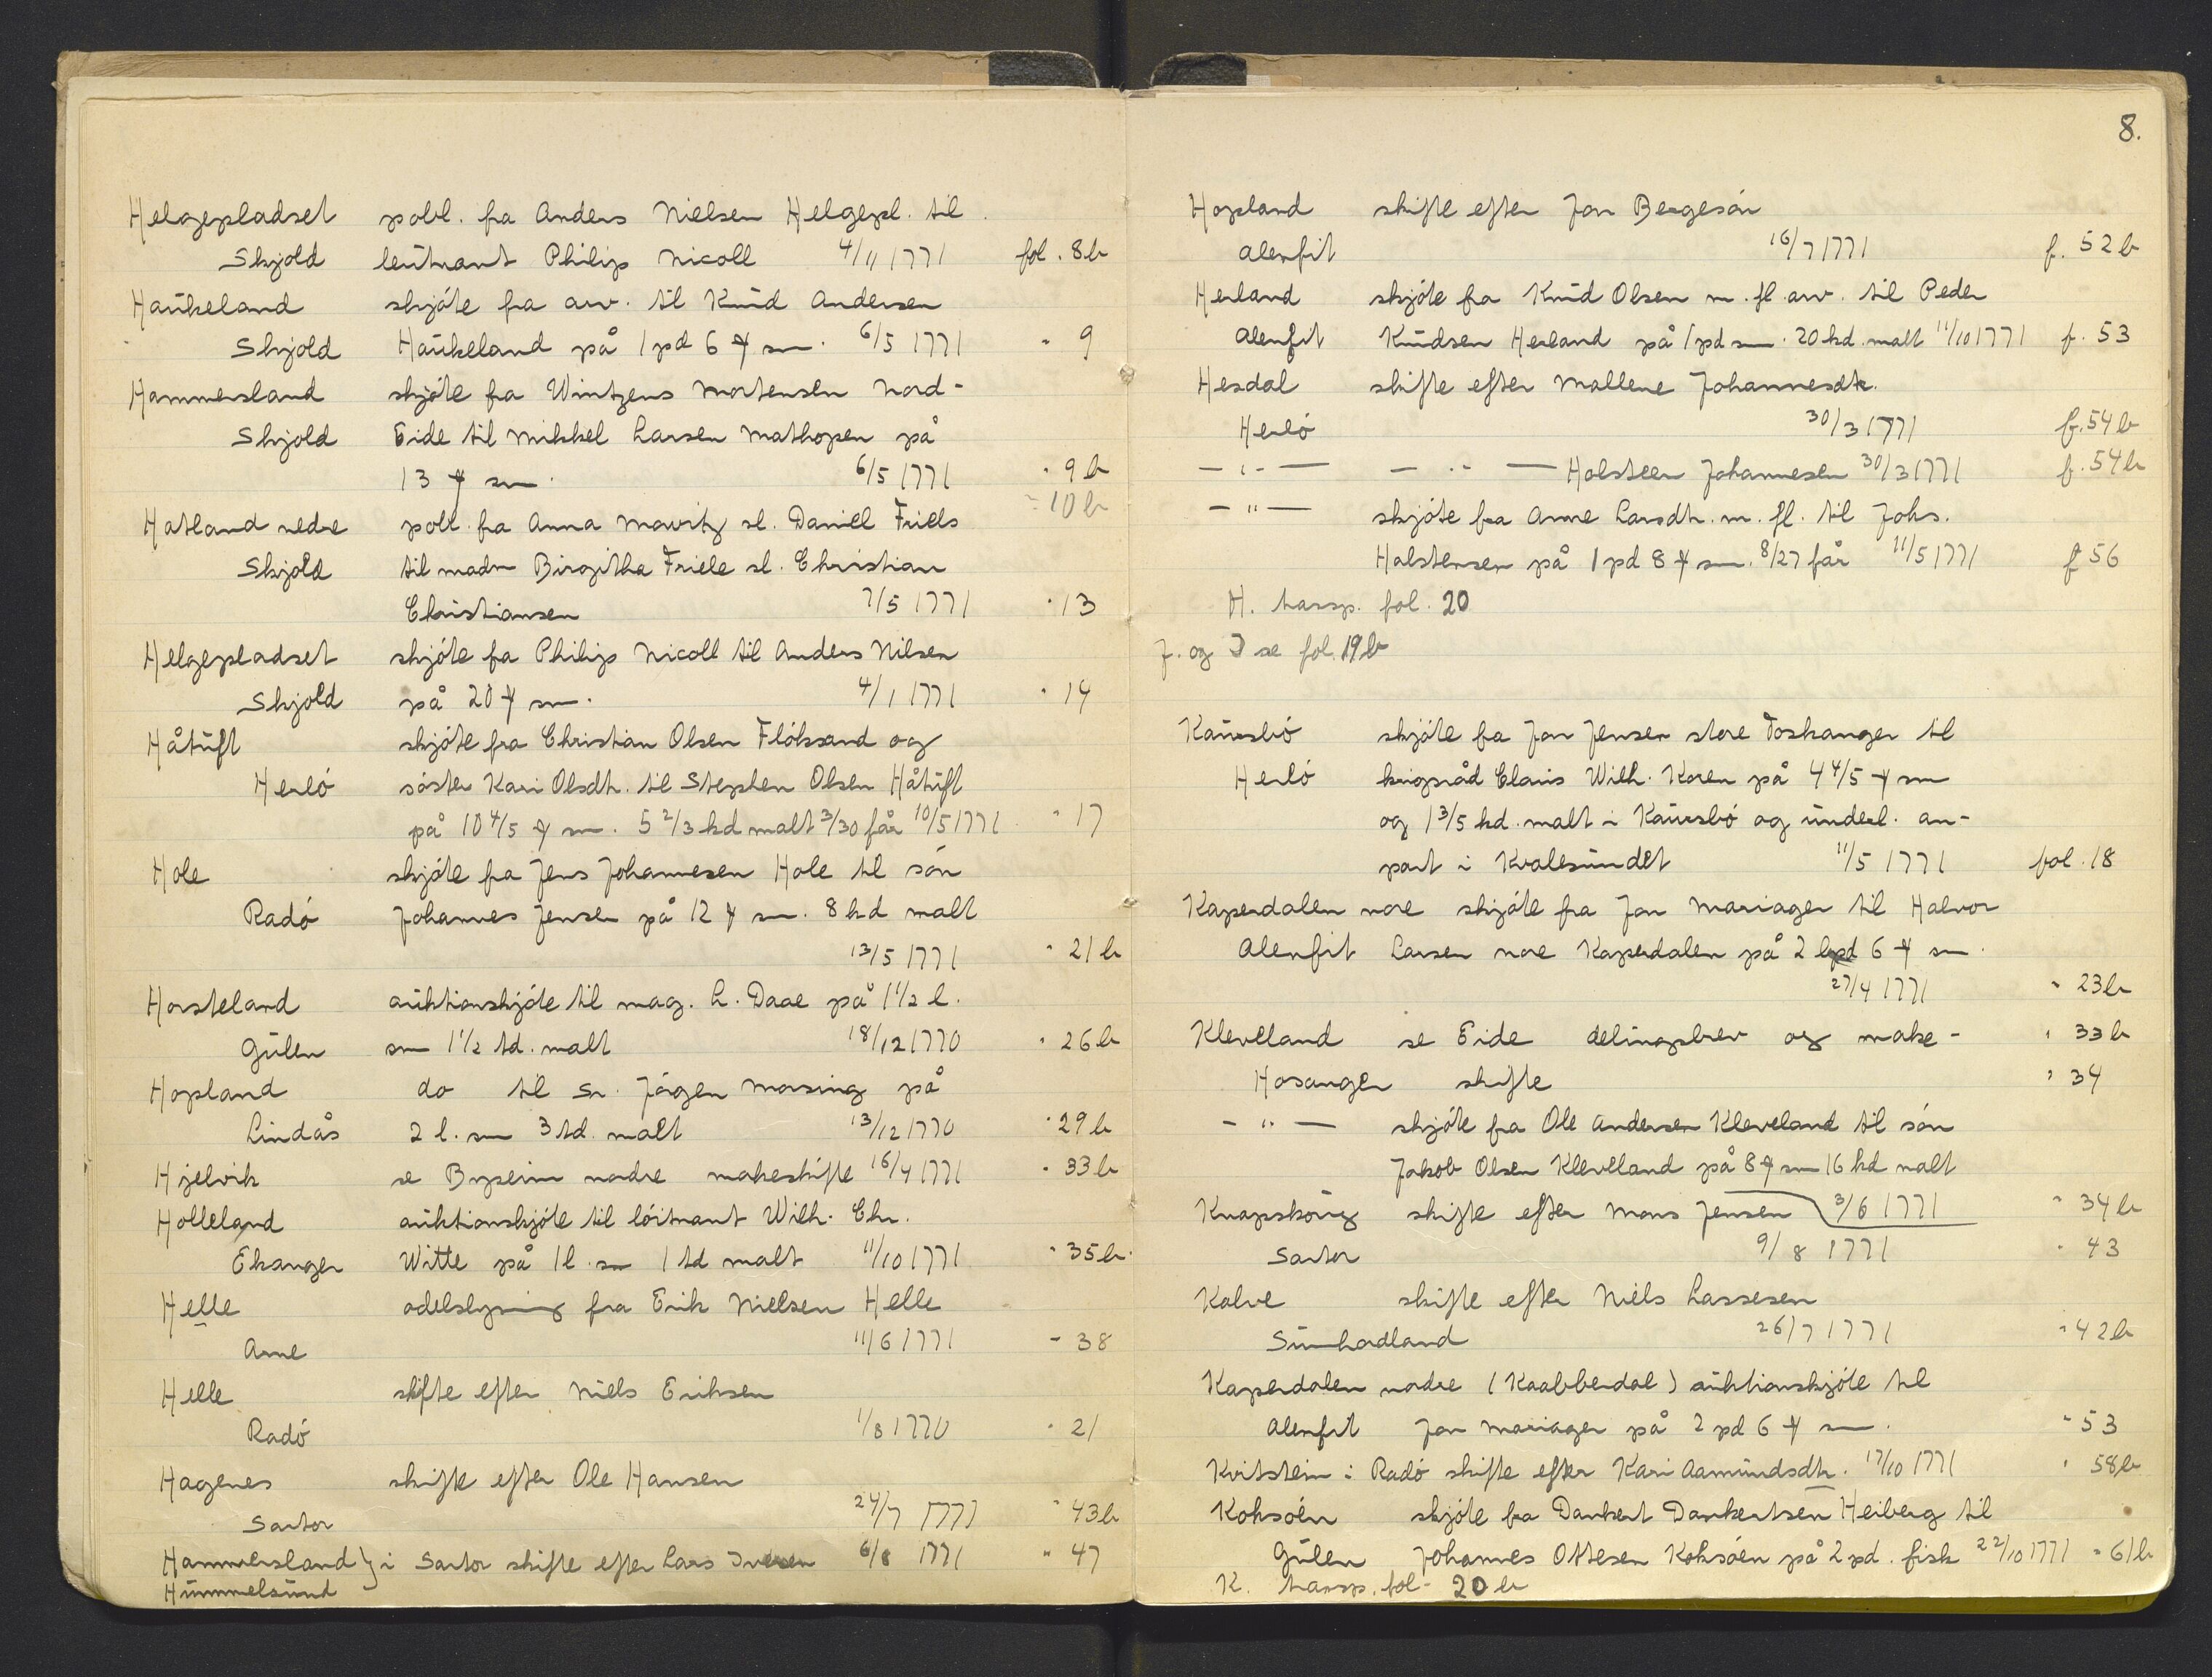 Helgepladset pobl. fra Anders Nielsen Helgepl. til
Skjold leutnant Philip Nicoll 4/11 1771 fol. 8b
Haukeland skjöte fra arv. til Knud Andersen
Skjold Haukeland på 1 pd 6 ℔ sm. 6/5 1771 " 9
Hammersland skjöte fra Wintzens Mortensen Nord-
Skjold Eide til Mikkel Larsen Mathopen på
13 ℔ sm. 6/5 1771 " 9b
" 10b
Hatland nedre pobl. fra Anna Mowitz sl. Daniel Friels
Skjold til madm Birgitha Friele sl. Christian
Christiansen 7/5 1771 " 13
Helgepladset skjöte fra Philip Nicoll til Anders Nilsen
Skjold på 20 ℔ sm. 4/1 1771 " 14
Håtuft skjöte fra Christian Olsen Flöksand og
Herlö söster Kari Olsdtr. til Stephen Olsen Håtuft
på 10 4/5 ℔ sm. 5 2/3 kd malt 3/30 får 10/5 1771 " 17
Hole skjöte fra Jens Johannesen Hole til sön
Radö Johannes Jensen på 12 ℔ sm. 8 kd malt
13/5 1771 " 21b
Horsteland auktionskjöte til mag. L. Daae på 1 1/2 l.
Gulen sm 1 1/2 td. malt 18/12 1770 " 26b
Hopland do til Sr. Jörgen Morsing på
Lindås 2 l. sm 3 td. malt 13/12 1770 " 29b
Hjelvik se Bryseim nordre makeskifte 16/4 1771 " 33b
Holleland auktionskjöte til löitnant Wilh. Chr.
Ekanger Witte på 1 l. sm 1 td malt 11/10 1771 " 35b
Helle odelslysning fra Erik Nielsen Helle
Arne 11/6 1771 " 38
Helle skifte efter Niels Eriksen
Radö 1/8 1770 " 21
Hagenes skifte efter Ole Hansen
Sartor 24/7 1771 " 43b
Hammersland } i Sartor skifte efter Lars Iversen 6/8 1771 " 47
Hummelsund
8.
Hopland skifte efter Jon Bergesön
Alenfit 16/7 1771 f. 52b
Herland skjöte fra Knud Olsen m. fl. arv. til Peder
Alenfit Knudsen Herland på 1 pd sm. 20 kd. malt 11/10 1771 f. 53
Hesdal skifte efter Mallene Johannesdtr.
Herlö 30/3 1771 f. 54b
— " — — " — Holsteen Johannesen 30/3 1771 f. 54b
— " — skjöte fra Anne Larsdtr. m. fl. til Johs.
Holstensen på 1 pd 8 ℔ sm. 8/27 får 11/5 1771 f 56
H. transp. fol. 20
J. og I se fol. 19b
Kaursbö skjöte fra Jon Jensen store Toskanger til
Herlö krigsråd Claus Wilh. Koren på 4 4/5 ℔ sm
og 1 3/5 kd. malt i Kaursbö og underl. an-
part i Kvalesundet 11/5 1771 fol. 18
Kaperdalen nore skjöte fra Jon Mariager til Halvor
Alenfit Larsen nore Kaperdalen på 2 lpd 6 ℔ sm.
27/4 1771 " 23b
Klevelland se Eide delingsbrev og make- " 33b
Hosanger skifte " 34
— " — skjöte fra Ole Andersen Kleveland til sön
Jakob Olsen Klevelland på 8 ℔ sm 16 kd malt
3/6 1771 " 34b
Knapskoug skifte efter Mons Jensen
Sartor 9/8 1771 " 43
Kalve skifte efter Niels Lassesen
Sunhordland 26/7 1771 " 42b
Kaperdalen nordre (Kaabberdal) auktionskjöte til
Alenfit Jon Mariager på 2 pd 6 ℔ sm. " 53
Kvitstein i Radö skifte efter Kari Aamundsdtr. 17/10 1771 " 58b
Koksöen skjöte fra Dankert Dankertsen Heiberg til
Gulen Johannes Ottesen Koksöen på 2 pd. fisk 22/10 1771 " 61b
K. transp. fol. 20b